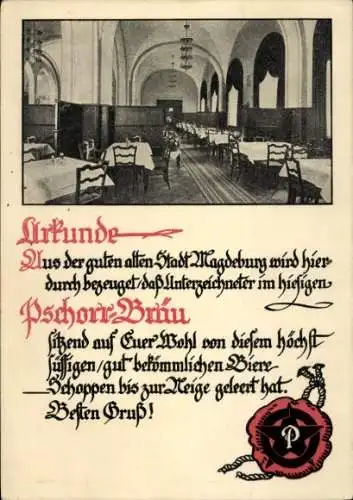 Urkunde
Aus der guten alten Stadt Magdeburg wird hier-
durch bezeuget / daß Unterzeichneter im hiesigen
Pschorr-Bräu
sitzend auf Euer Wohl von diesem höchst
süffigen / gut bekömmlichen Biere
Schoppen bis zur Neige geleert hat
Besten Gruß!
P